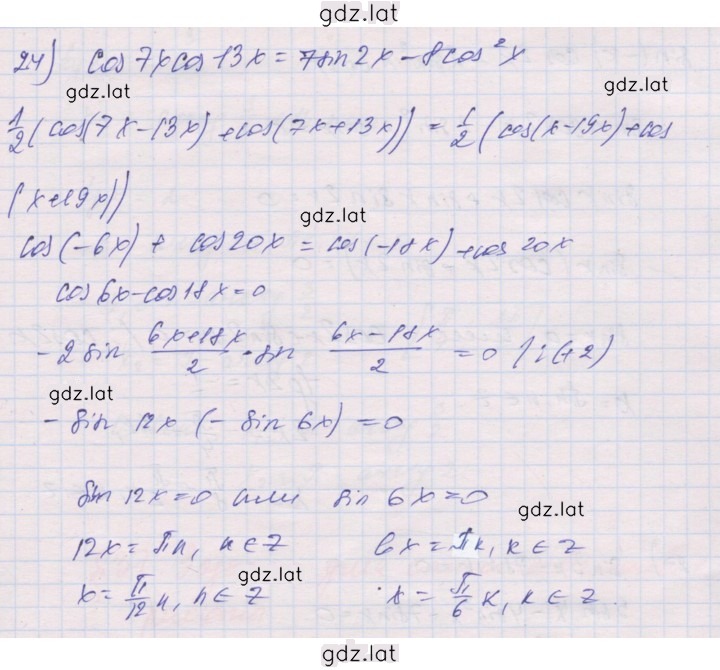 gdz.lat
24) cos 7x cos 13x = 7sin 2x - 8cos²x
gdz.lat
gdz.lat
1/2 (cos(7x-13x) + cos(7x+13x)) = 1/2 (cos(x-19x)+cos
(x+19x))
gdz.lat
cos(-6x) + cos20x = cos(-18x) + cos 20x
cos6x-cos18x=0
-2 sin (6x+18x)/2 · sin (6x-18x)/2 = 0 |:(+2)
gdz.lat
- sin 12x (- sin 6x) = 0
sin 12x = 0 или sin 6x = 0
gdz.lat
12x = πn, n ∈ Z 6x = πk, k ∈ Z
gdz.lat
x = π/12 n, n ∈ Z x = π/6 k, k ∈ Z.
gdz.lat